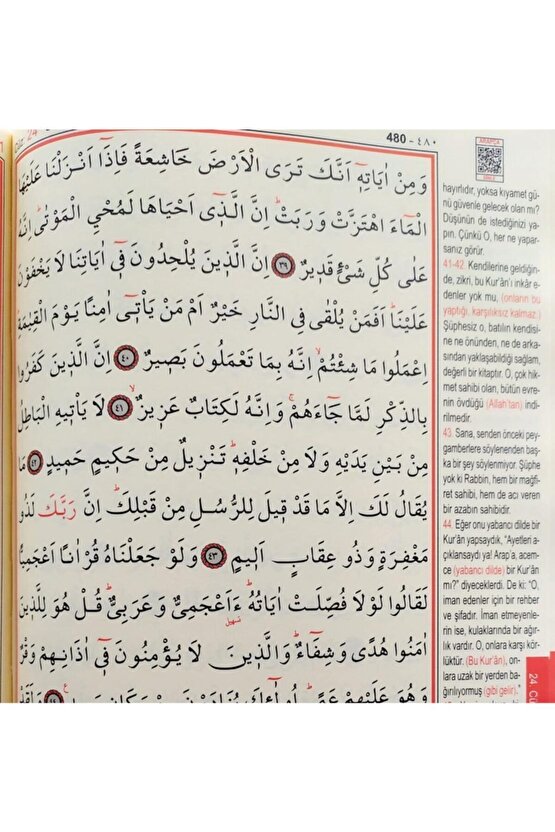 480 - ٤٨٠
وَمِنْ اٰيَاتِه۪ٓ اَنَّكَ تَرَى الْاَرْضَ خَاشِعَةً فَاِذَٓا اَنْزَلْنَا عَلَيْهَا
الْمَٓاءَ اهْتَزَّتْ وَرَبَتْۜ اِنَّ الَّذ۪ٓي اَحْيَاهَا لَمُحْيِ الْمَوْتٰىۜ اِنَّهُ
عَلٰى كُلِّ شَيْءٍ قَد۪يرٌ ٣٩ اِنَّ الَّذ۪ينَ يُلْحِدُونَ ف۪ٓي اٰيَاتِنَا لَا يَخْفَوْنَ
عَلَيْنَاۜ اَفَمَنْ يُلْقٰى فِي النَّارِ خَيْرٌ اَمْ مَنْ يَأْت۪ٓي اٰمِنًا يَوْمَ الْقِيٰمَةِ
اِعْمَلُوا مَا شِئْتُمْۙ اِنَّهُ بِمَا تَعْمَلُونَ بَص۪يرٌ ٤٠ اِنَّ الَّذ۪ينَ كَفَرُوا
بِالذِّكْرِ لَمَّا جَٓاءَهُمْۚ وَاِنَّهُ لَكِتَابٌ عَز۪يزٌۙ ٤١ لَا يَأْت۪يهِ الْبَاطِلُ
مِنْ بَيْنِ يَدَيْهِ وَلَا مِنْ خَلْفِه۪ۜ تَنْز۪يلٌ مِنْ حَك۪يمٍ حَم۪يدٍ ٤٢ مَا
يُقَالُ لَكَ اِلَّا مَا قَدْ ق۪يلَ لِلرُّسُلِ مِنْ قَبْلِكَۜ اِنَّ رَبَّكَ لَذُو
مَغْفِرَةٍ وَذُو عِقَابٍ اَل۪يمٍ ٤٣ وَلَوْ جَعَلْنَاهُ قُرْاٰنًا اَعْجَمِيًّا
لَقَالُوا لَوْلَا فُصِّلَتْ اٰيَاتُهُۜ ءَاَعْجَمِيٌّ وَعَرَبِيٌّۜ قُلْ هُوَ لِلَّذ۪ينَ
تسهيل
اٰمَنُوا هُدًى وَشِفَٓاءٌۜ وَالَّذ۪ينَ لَا يُؤْمِنُونَ ف۪ٓي اٰذَانِهِمْ وَقْرٌ
وَهُوَ عَلَيْهِمْ عَمًىۜ
hayırlıdır, yoksa kıyamet gü-
nü güvenle gelecek olan mı?
Düşünün de istediğinizi ya-
pın. Çünkü O, her ne yapar-
sanız görür.
41-42. Kendilerine geldiğin-
de, zikri, bu Kur'ân'ı inkâr e-
denler yok mu, (onların bu
yaptığı, karşılıksız kalmaz.)
Şüphesiz o, batılın kendisi-
ne ne önünden, ne de arka-
sından yaklaşabildiği sağlam,
değerli bir kitaptır. O, çok hik-
met sahibi olan, bütün evre-
nin övdüğü (Allah'tan) indi-
rilmedir.
43. Sana, senden önceki pey-
gamberlere söylenenden baş-
ka bir şey söylenmiyor. Şüphe
yok ki Rabbin, hem bir mağfi-
ret sahibi, hem de acı veren
bir azabın sahibidir.
44. Eğer onu yabancı dilde bir
Kur'ân yapsaydık, "Ayetleri a-
çıklansaydı ya! Arap'a, acem-
ce (yabancı dilde) bir Kur'ân
mı?" diyeceklerdi. De ki: "O,
iman edenler için bir rehber
ve şifadır. İman etmeyenle-
rin ise, kulaklarında bir ağır-
lık vardır. O, onlara karşı kör-
lüktür. (Bu Kur'ân), on-
lara uzak bir yerden ba-
ğırılıyormuş (gibi gelir)."